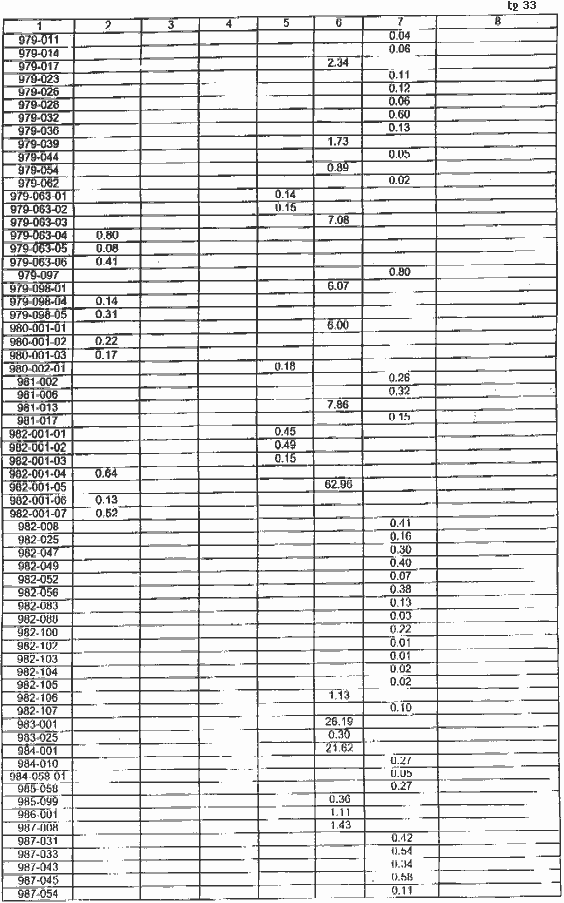 tp 33
1 2 3 4 5 6 7 8
979-011 0.04
979-014 0.06
979-017 2.34
979-023 0.11
979-026 0.12
979-028 0.06
979-032 0.60
979-036 0.13
979-039 1.73
979-044 0.05
979-054 0.89
979-062 0.02
979-063-01 0.14
979-063-02 0.15
979-063-03 7.08
979-063-04 0.80
979-063-05 0.08
979-063-06 0.41
979-097 0.80
979-098-01 6.07
979-098-04 0.14
979-098-05 0.31
980-001-01 6.00
980-001-02 0.22
980-001-03 0.17
980-002-01 0.18
981-002 0.26
981-006 0.32
981-013 7.86
981-017 0.15
982-001-01 0.45
982-001-02 0.49
982-001-03 0.15
982-001-04 0.64
982-001-05 62.96
982-001-06 0.13
982-001-07 0.52
982-008 0.41
982-025 0.16
982-047 0.30
982-049 0.40
982-052 0.07
982-056 0.38
982-083 0.13
982-088 0.03
982-100 0.22
982-102 0.01
982-103 0.01
982-104 0.02
982-105 0.02
982-106 1.13
982-107 0.10
983-001 26.19
983-025 0.30
984-001 21.62
984-010 0.27
984-058-01 0.05
985-058 0.27
985-099 0.36
986-001 1.11
987-008 1.43
987-031 0.42
987-033 0.54
987-043 0.34
987-045 0.58
987-054 0.11